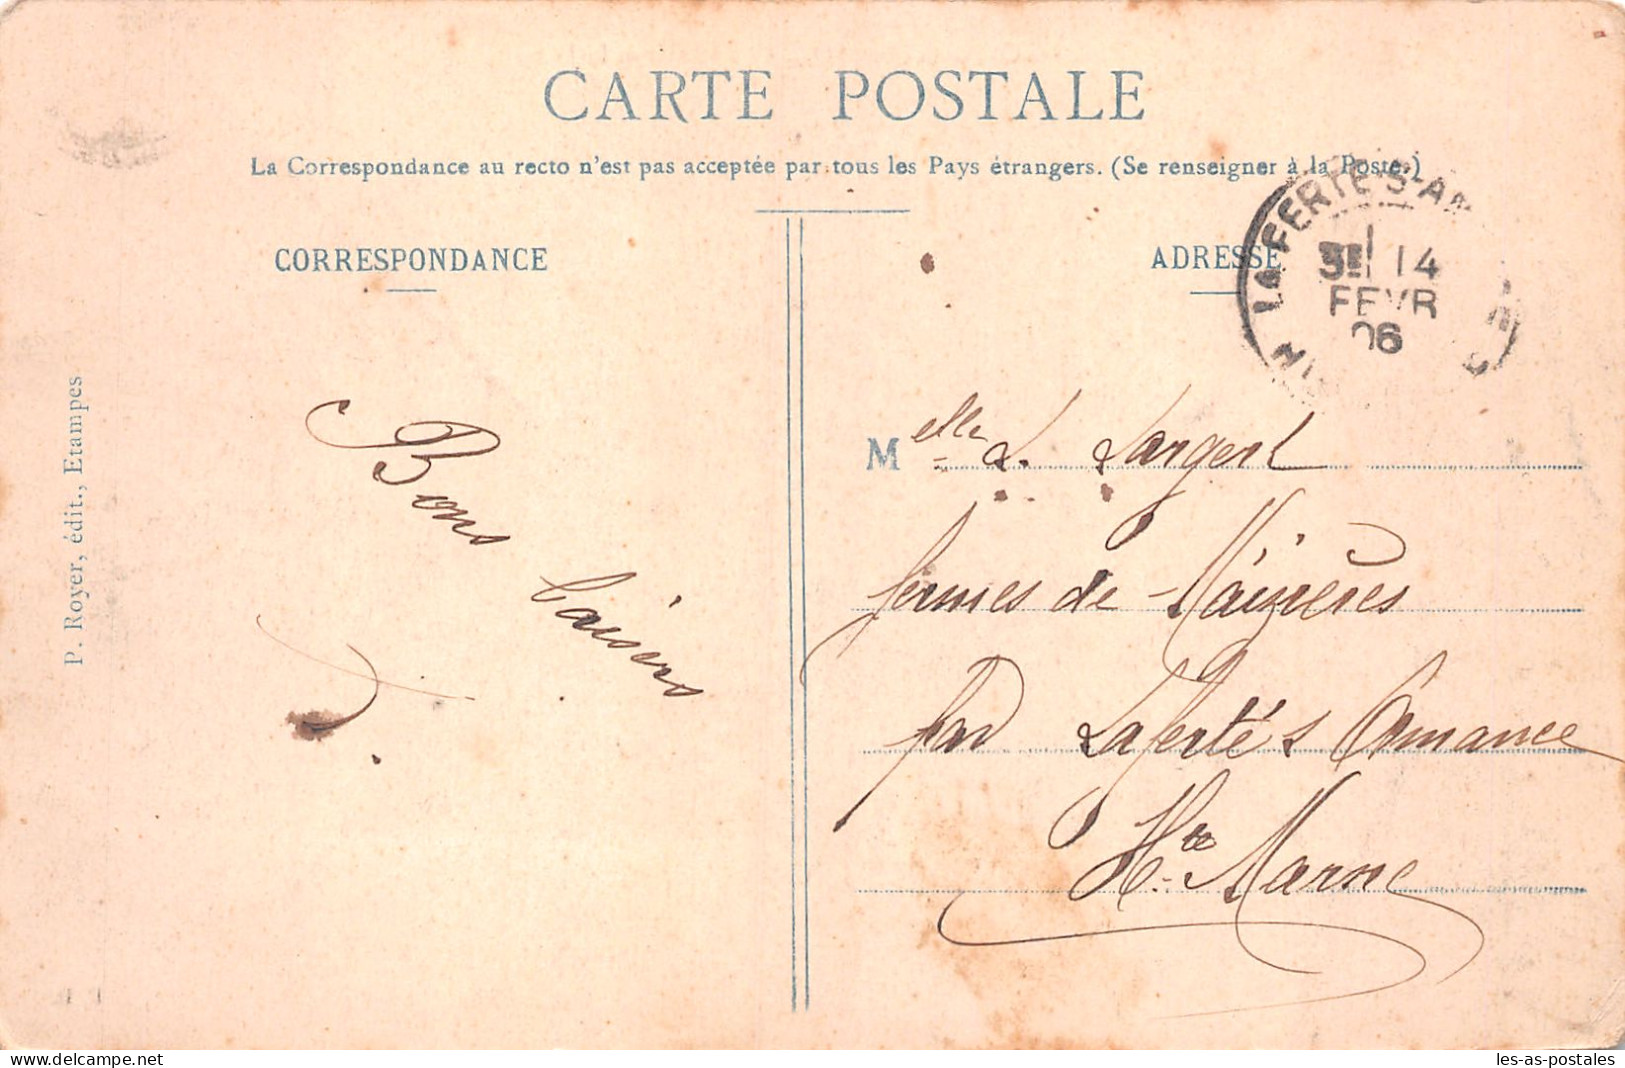 CARTE POSTALE
La Correspondance au recto n'est pas acceptée par tous les Pays étrangers. (Se renseigner à la Poste.)
CORRESPONDANCE
ADRESSE
LA FERTE-S-AM
3E 14
FEVR
06
P. Royer, édit., Etampes
Bons
baisers
Melle L. Largent
fermes de Maizières
par Laferté s Amance
Hte Marne
www.delcampe.net
les-as-postales